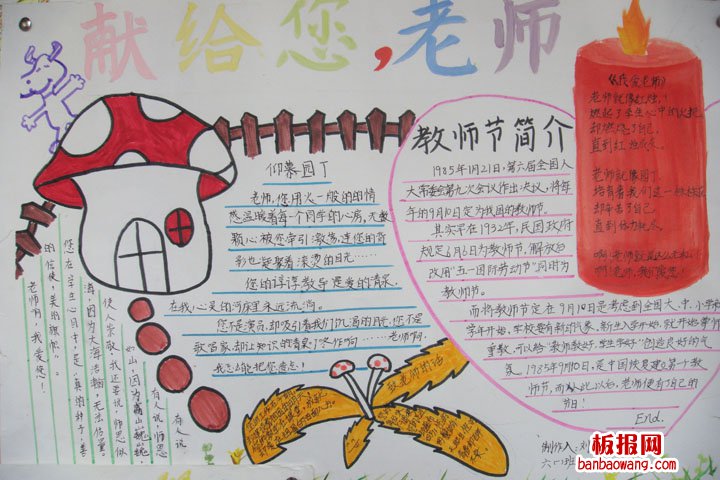 献给您,老师
仰慕园丁
老师,您用火一般的情
感温暖着每一个同学的心房,无数
颗心被您牵引激荡,连您的背
影也凝聚着滚烫的目光……
您的谆谆教导是爱的清泉,
在我心灵的河床里永远流淌。
您不是演员,却吸引着我们饥渴的目光,您不是
歌唱家,却让知识的清泉叮咚作响……老师啊,
我怎么能把您遗忘!
教师节简介
1985年1月21日,第六届全国人
大常委会第九次会议作出决议,将每
年的9月10日定为我国的教师节。
其实早在1932年,民国政府
规定6月6日为教师节,解放后
改用"五一国际劳动节"同时为
教师节。
而将教师节定在9月10日是考虑到全国大、中、小学
学年开始,学校要有新的气象。新生入学开始,就开始尊师
重教,可以给"教师教好,学生学好"创造良好的气
氛。1985年9月10日,是中国恢复建立第一个教
师节,而从此以后,老师便有了自己的
节日!
End.
老师就像红烛,
燃起了学生心中的火把,
却燃烧了自己,
直到
老师就像园丁,
培育着我们这一
却辛苦了自己,
直到
有人说
有人说,师恩
如山,因为高山巍巍,
使人崇敬。我还要说,师恩似
海,因为大海浩瀚,无法估量。
您在学生心目中,是"真的种子,善
的信使,美的旗帜"。
老师啊,我爱您!
制作人:刘
六(1)班
板报网
banbaowang.com